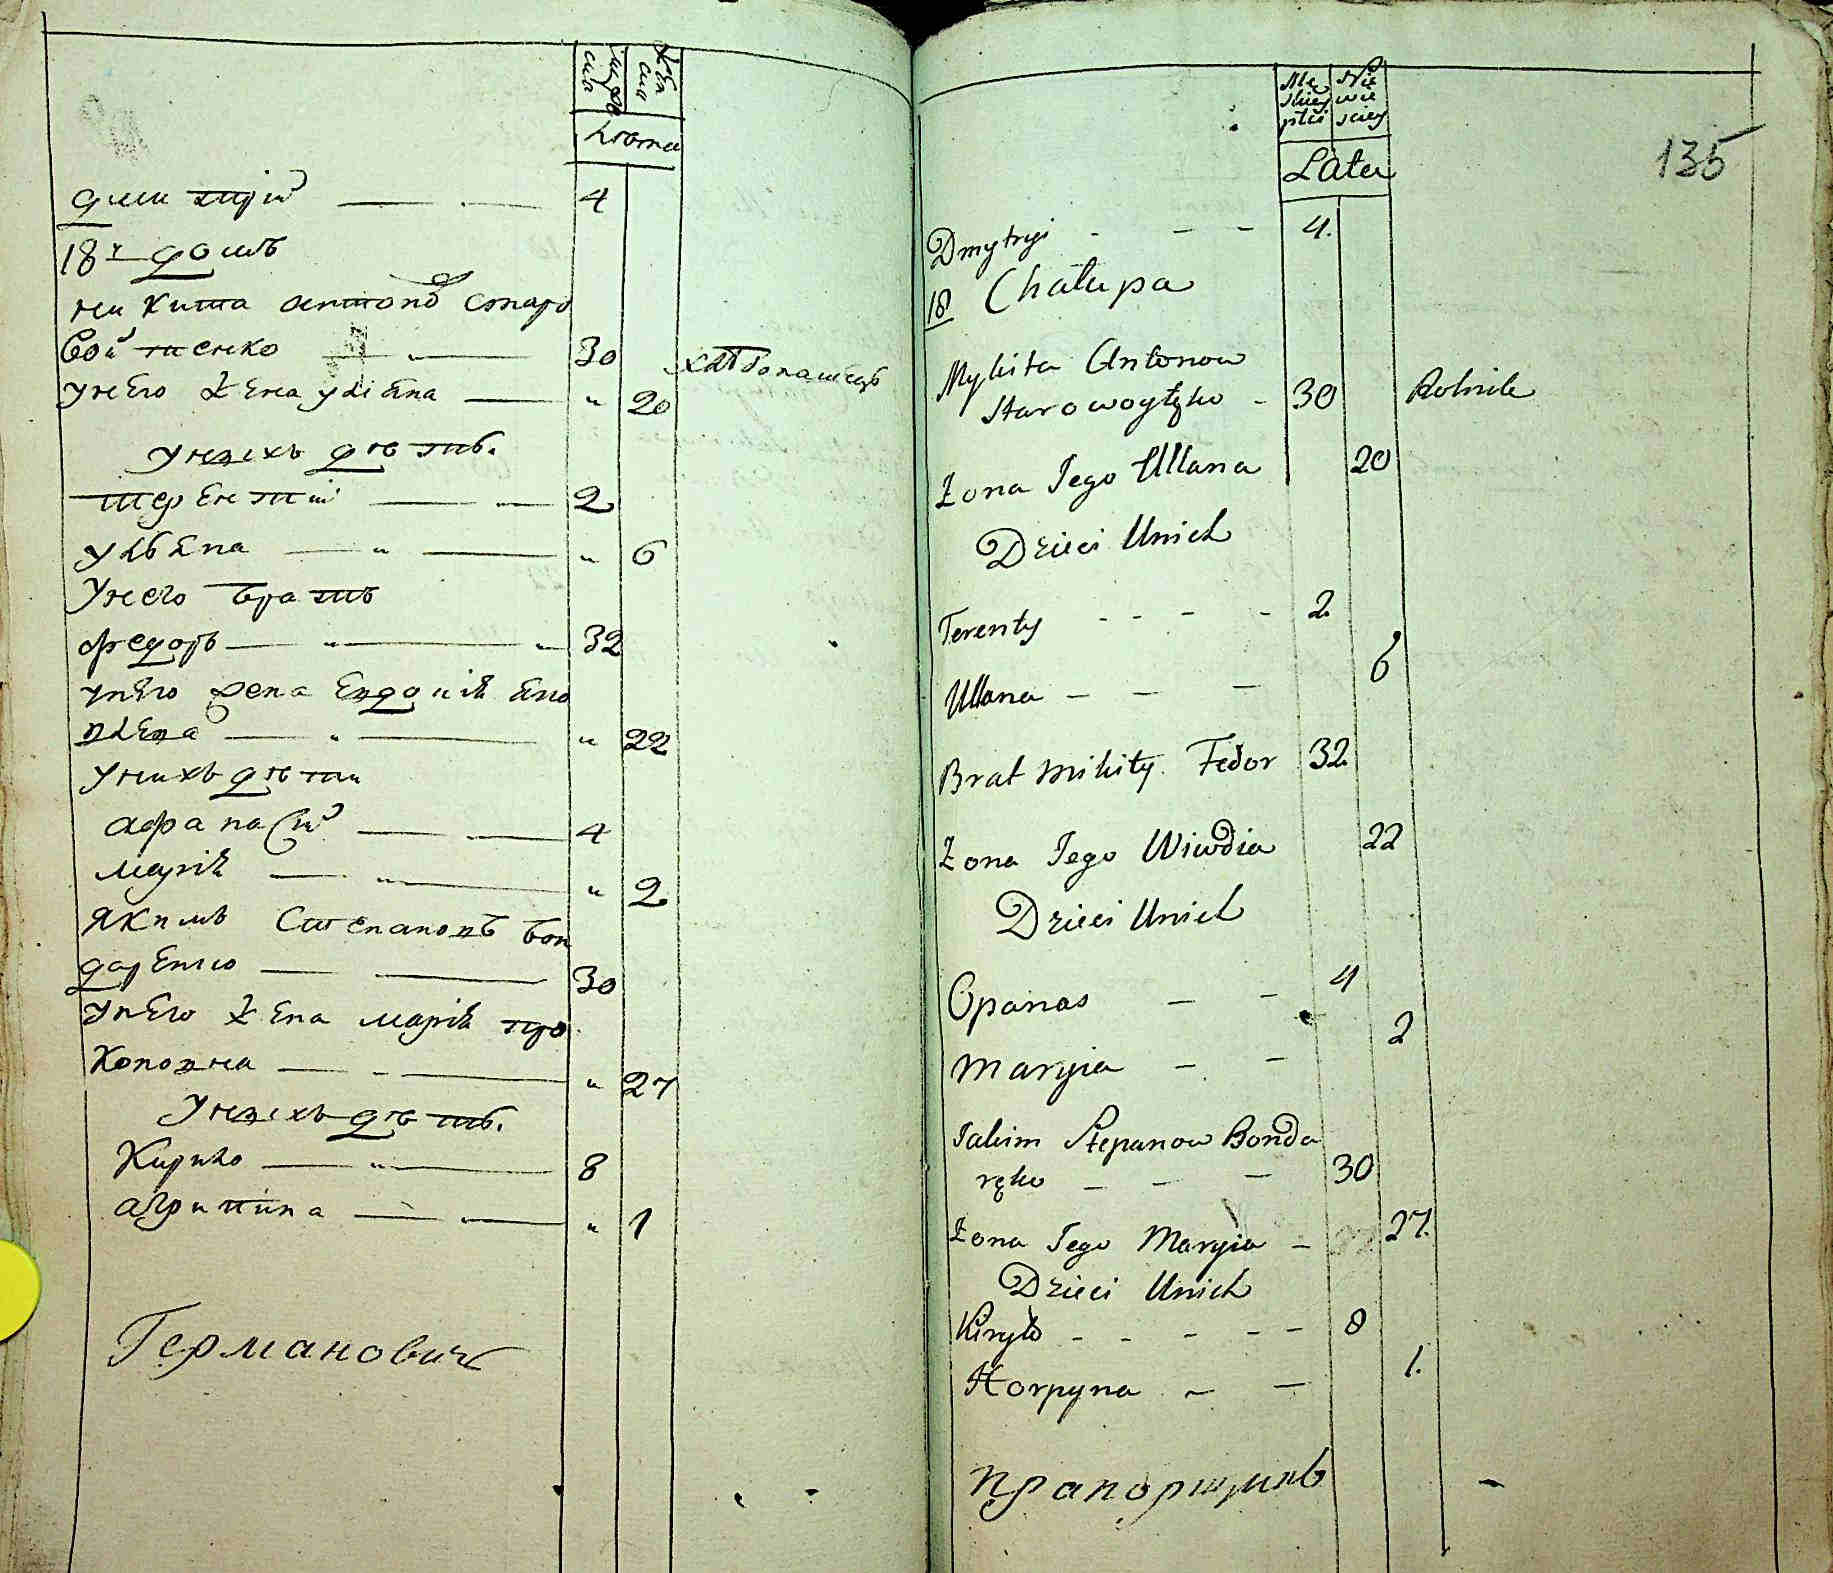 лѣта
дмитрій 4
18й домъ
никита антоновъ старо
войтенко 30 хлѣбопашецъ
у него жена улияна " 20
у нихъ дѣти.
терентій 2
улияна " 6
у него братъ
федоръ 32
у него жена евдокия яко
влева " 22
у нихъ дѣти
афанасій 4
мария " 2
яким Степановъ бон
даренко 30
у него жена мария про
коповна " 27
у нихъ дѣти.
Кирило 8
агрипина " 1
Германовичъ
Mę
skiey
płci
Nie
wie
sciey
Lata
135
Dmytryi 4.
18 Chałupa
Mykita Antonow
Starowoytęko 30 Rolnik
Żona Jego Ullana 20
Dzieci Unich
Terenty 2
Ullana 6
Brat Mikity Fedor 32
Żona Jego Wiwdia 22
Dzieci Unich
Opanas 4
Maryia 2
Jakim Stepanow Bonda
ręko 30
Żona Jego Maryia 27.
Dzieci Unich
Kiryło 8
Horpyna 1.
Прапорщикъ